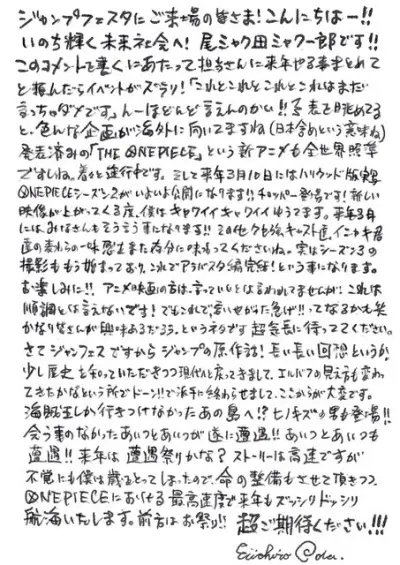 ジャンプフェスタにご来場の皆さま！こんにちはー！！
いのち輝く未来社会へ！尾ミャク田ミャク一郎です！！
このコメントを書くにあたって担当さんに来年やる事まとめて
と頼んだらイベントがズラリ！「これとこれとこれとこれはまだ
言っちゃダメです」んーほどんど言えんのかい！！予表を眺めてる
と、色んな企画が海外に向いてますね（日本含めという意味ね）
発表済みの「THE ONE PIECE」という新アニメも全世界照準
ですしね。着々と進行れです。そして来年3月10日にはハリウッド版実写
ONE PIECEシーズン2がいよいよ公開になります！！チョッパー登場です！新しい
映像が上がってくる度、僕はキャワイイキャワイイゆうてます。来年3月
には、みなさんもそう言う事になります！！その他クセ強キャスト達、イニャキ君
達の変わらぬ一味感もまた存分に味わってくださいね。実はシーズン3の
撮影ももう始まっており、これでアラバスタ編完結！という事になります。
お楽しみに！！アニメ映画の方は、言っていいとは言われてませんが、これは
順調とは言えないです！でもこれで言いせかけた急げ！！ってなるかも笑
かなり皆さんが興味あるだろう、というネタです超気長に待っててください。
さてジャンフェスですからジャンプの原作話！長い長い回想というか
少し歴史を知っていただきつつ現代へと戻ってきまして、エルバフの見え方も変わ
ってきたかなという所でドーン！！で派手に終わらせまして、ここからが大変です。
海賊王しか行きつけなかったあの島へ！？ヒノキズの男も登場！！
会う事のなかったあいつとあいつが遂に遭遇！！あいつとあいつも
遭遇！！来年は遭遇祭りかな？ストーリーは高速ですが
不覚にも僕は歳をとってしまったので、命の整備もさせて頂きつつ、
ONE PIECEにおける最高速度で来年もズッシリドッシリ
航海いたします。前方はお祭り！！超ご期待ください！！！
Eiichiro Oda.